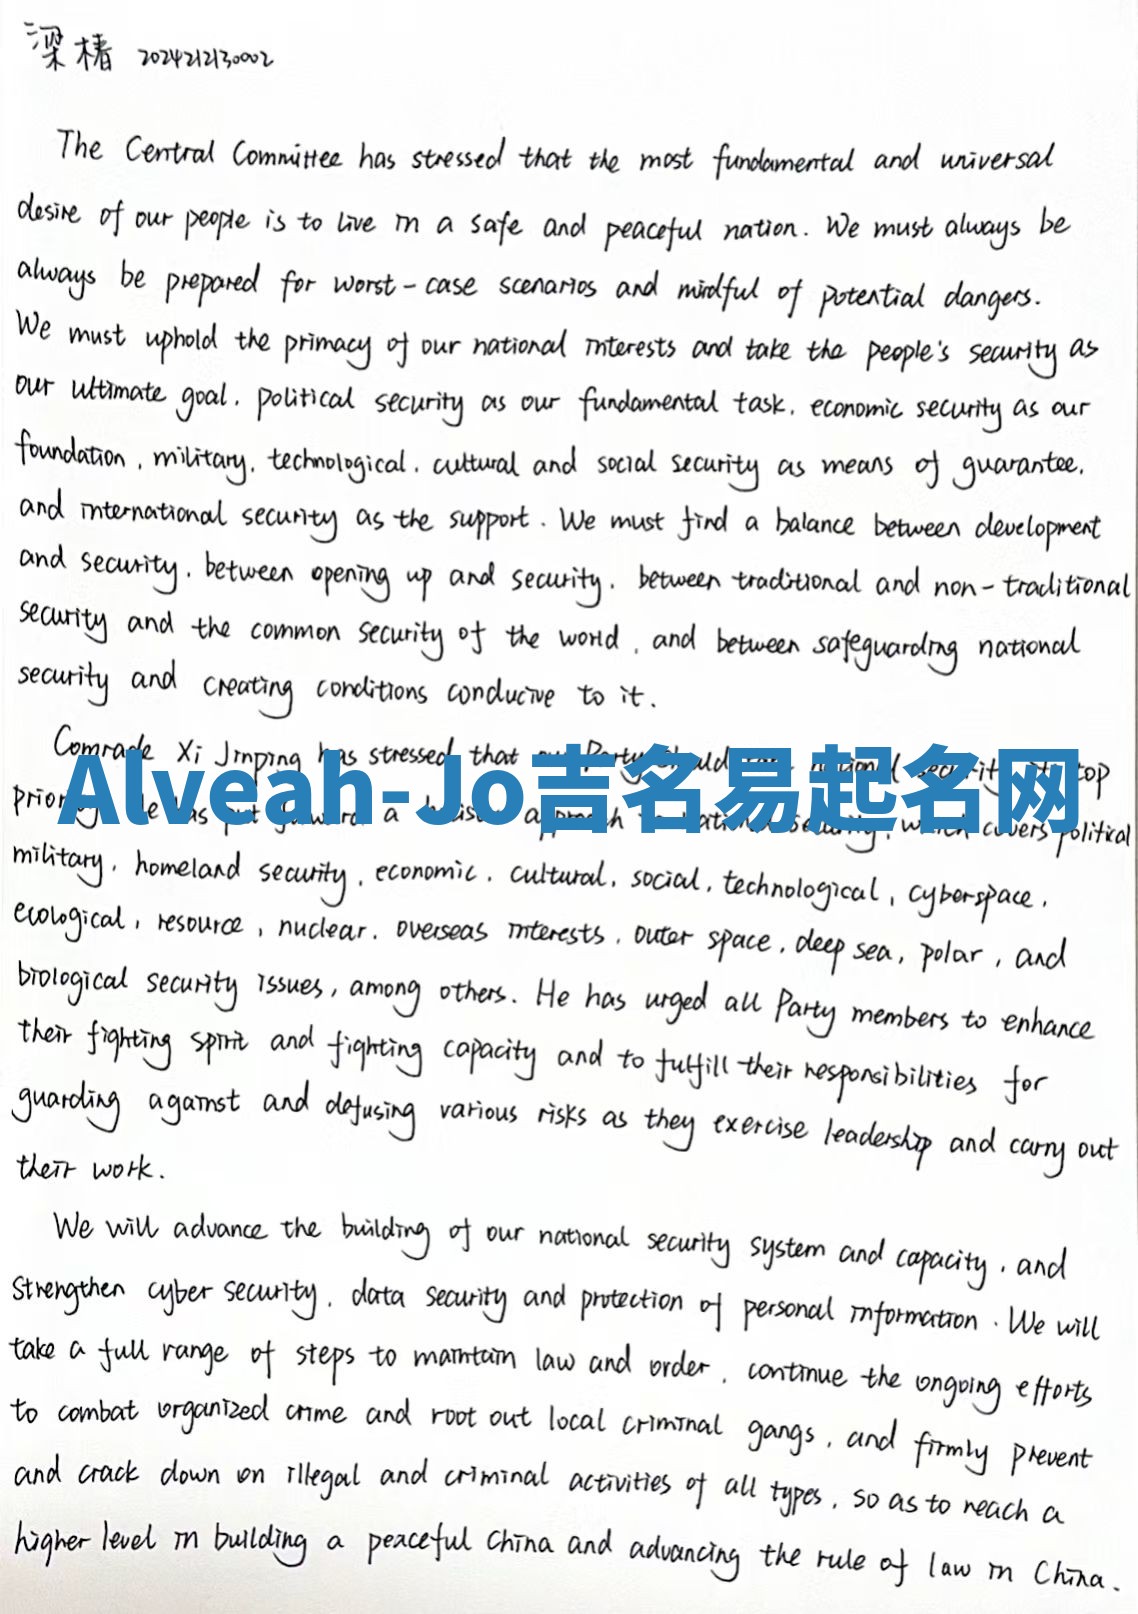 梁椿 2024212130002
The Central Committee has stressed that the most fundamental and universal
desire of our people is to live in a safe and peaceful nation. We must always be
always be prepared for worst-case scenarios and mindful of potential dangers.
We must uphold the primacy of our national interests and take the people's security as
our ultimate goal, political security as our fundamental task, economic security as our
foundation, military, technological, cultural and social security as means of guarantee,
and international security as the support. We must find a balance between development
and security, between opening up and security, between traditional and non-traditional
security and the common security of the world, and between safeguarding national
security and creating conditions conducive to it.
Comrade Xi Jinping has stressed that our Party should national security its top
Alveah-Jo吉名易起名网
priority He has put forward a holistic approach to national security, which covers political
military, homeland security, economic, cultural, social, technological, cyberspace,
ecological, resource, nuclear, overseas interests, outer space, deep sea, polar, and
biological security issues, among others. He has urged all Party members to enhance
their fighting spirit and fighting capacity and to fulfill their responsibilities for
guarding against and defusing various risks as they exercise leadership and carry out
their work.
We will advance the building of our national security system and capacity, and
strengthen cyber security, data security and protection of personal information. We will
take a full range of steps to maintain law and order, continue the ongoing efforts
to combat organized crime and root out local criminal gangs, and firmly prevent
and crack down on illegal and criminal activities of all types, so as to reach a
higher level in building a peaceful China and advancing the rule of law in China.